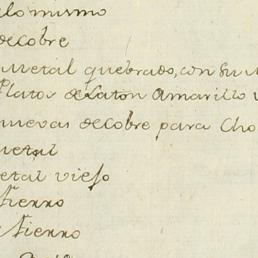 lo mismo
de cobre
Metal quebrado, con su
Platos de Laton Amarillo
nuevas de cobre para Cho
metal
etal viejo
fierro
fierro